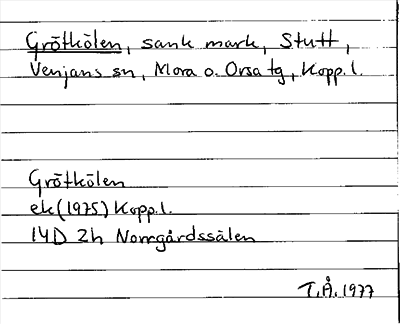 Grötkölen, sank mark, Stutt,
Venjans sn, Mora o. Orsa tg, Kopp.l.
Grötkölen
ek (1975) Kopp.l.
14D 2h Norrgårdssälen
T.Å. 1977